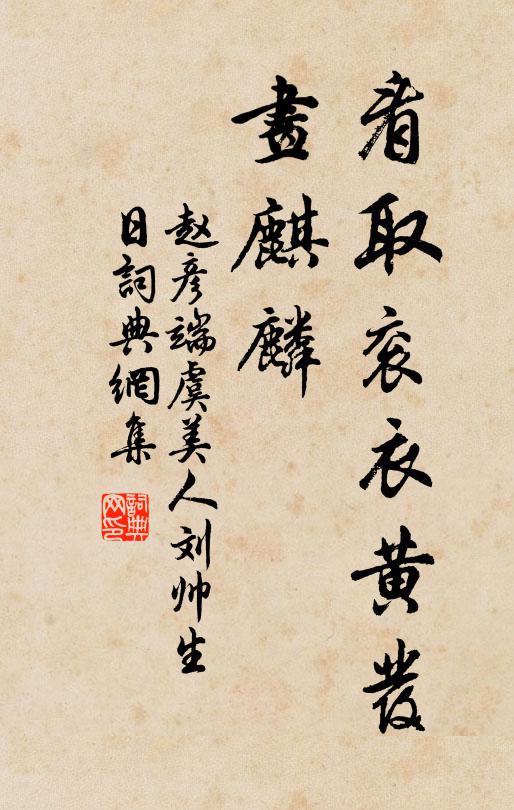 看取衮衣黄發
畫麒麟
赵彦端虞美人刘帅生
日詞典網集
詞典
网印